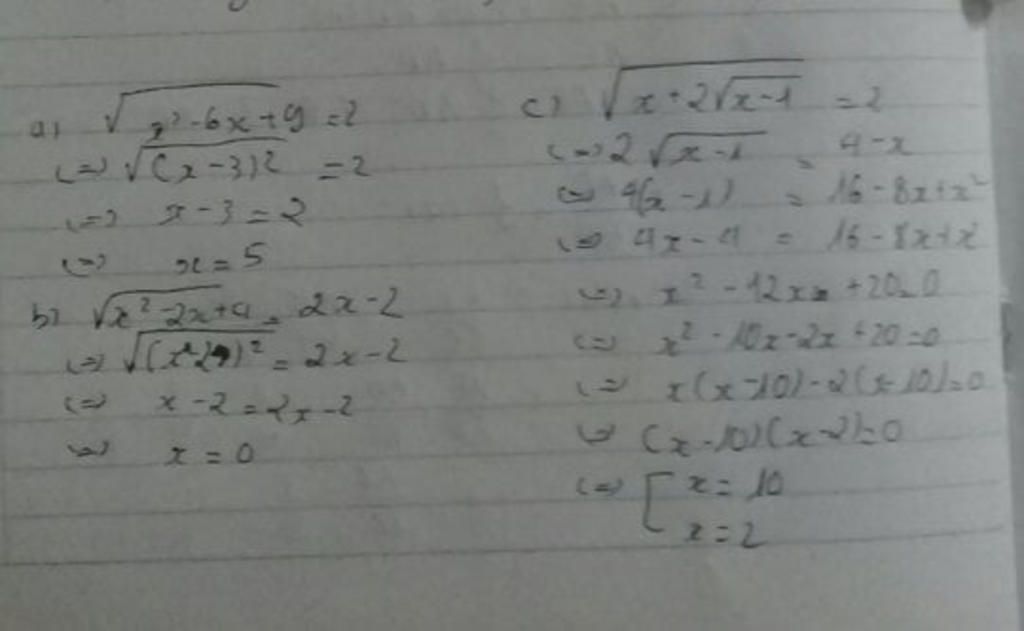 a) √(x²-6x+9) = 2
<=> √((x-3)2) = 2
<=> x-3 = 2
<=> x = 5
b) √(x²-2x+4) = 2x-2
<=> = 2x-2
<=> x-2 = 2x-2
<=> x = 0
c) √(x+2√(x-1)) = 2
<=> 2√(x-1) = 4-x
<=> 4(x-1) = 16-8x+x²
<=> 4x-4 = 16-8x+x²
<=> x²-12x+20=0
<=> x²-10x-2x+20=0
<=> x(x-10)-2(x-10)=0
<=> (x-10)(x-2)=0
<=> [ x = 10
x = 2